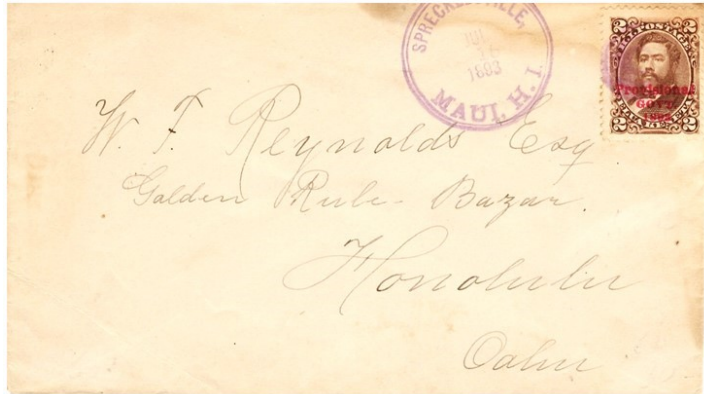 SPRECKELSVILLE.
JUL
31
1893
MAUI, H. I.
2 HI. POSTAGE 2
Provisional
GOVT.
1893
2 2
W. F. Reynolds Esq
Golden Rule - Bazar.
Honolulu
Oahu